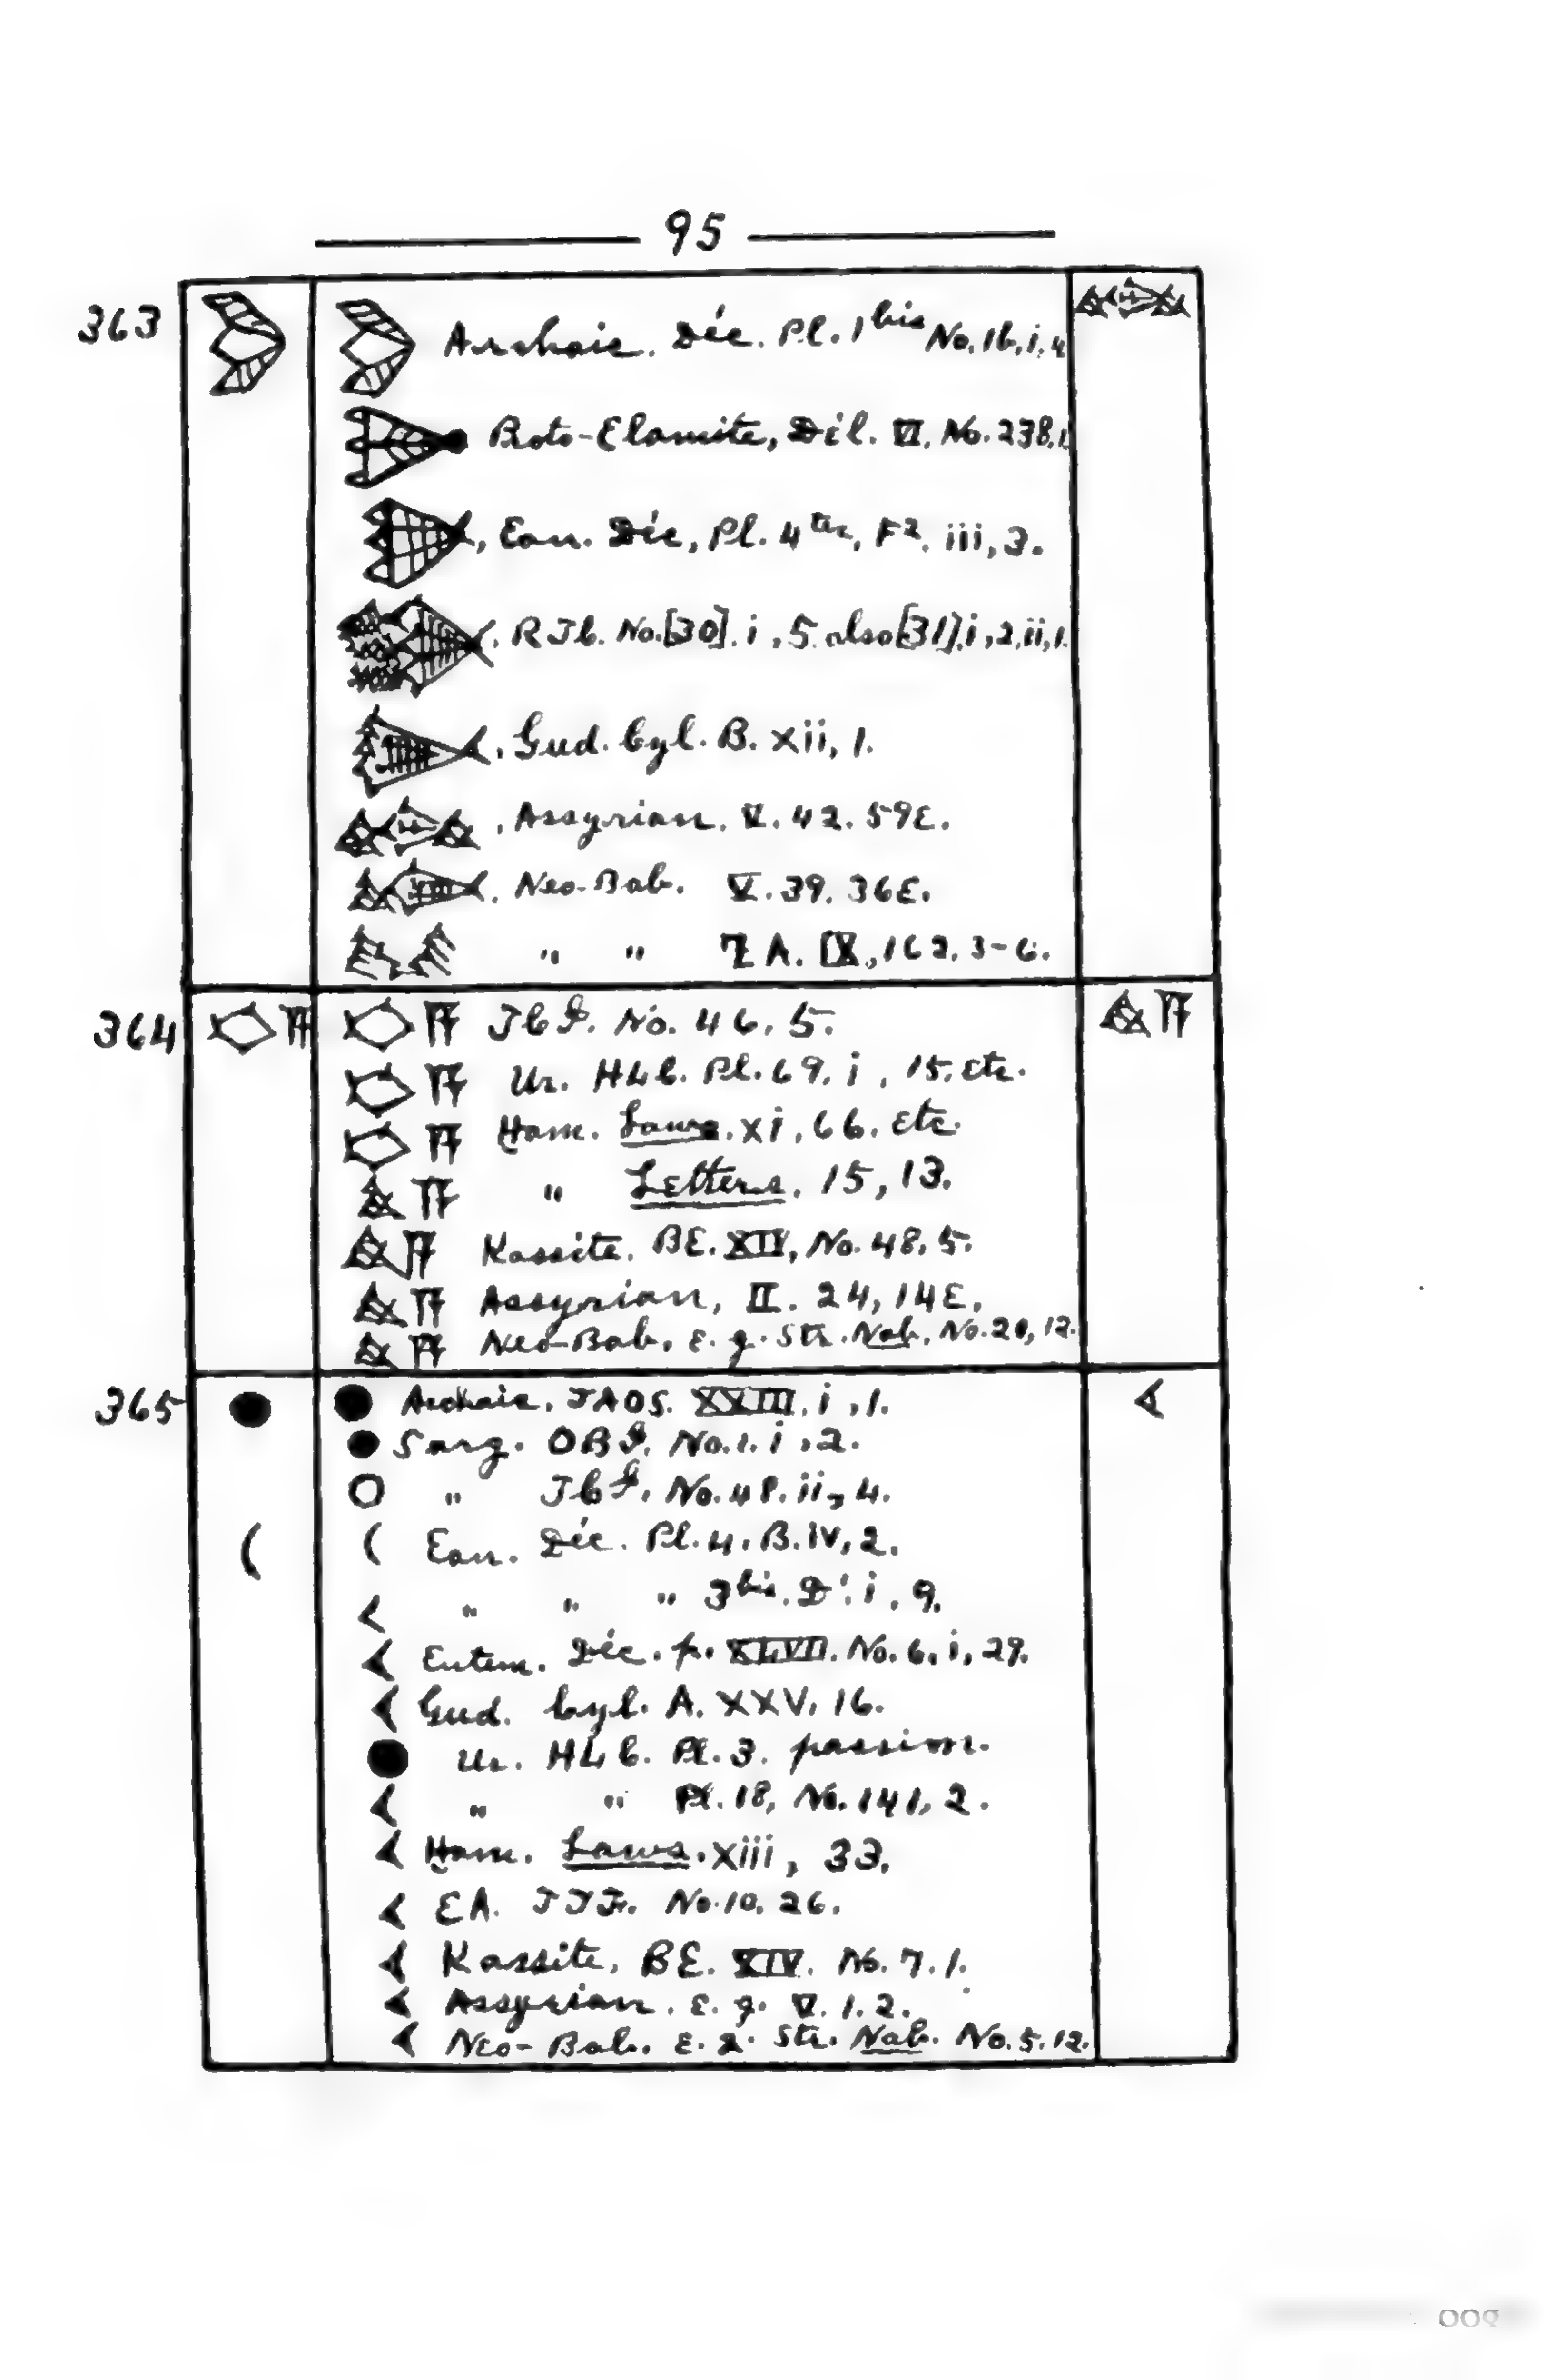 95
363 Archaic. Déc. Pl. 1bis No. 1b, i, 4
Proto-Elamite, Dél. VI, No. 238,1
, Ean. Déc, Pl. 4ter, F2, iii, 3.
, RTC. No. [30]. i, 5. also [31], i, 2, ii, 1.
, Gud. Cyl. B. xii, 1.
, Assyrian. V. 42. 59E.
, Neo-Bab. V. 39. 36E.
" " ZA. IX, 162. 3-6.
364 No. 46, 5.
Ur. HLC. Pl. 69. i, 15. etc.
Ḫam. Laws. xi, 66. etc.
" Letters. 15, 13.
Kassite. BE. XIV, No. 48. 5.
Assyrian, II. 24, 14E.
Neo-Bab. E. g. Str. Nab. No. 20, 12.
365 Archaic. JAOS. XXIII. i, 1.
Sarg. OBI. No. 1. i, 2.
" No. 48. ii, 4.
Ean. Déc. Pl. 4. B. iv, 2.
" " " 3bis. D'. i, 9.
Entem. Déc. p. XLVII. No. 6, i, 29.
Gud. Cyl. A. XXV, 16.
Ur. HLC. Pl. 3. passim.
" " Pl. 18, No. 141, 2.
Ḫam. Laws. xiii, 33.
EA. No. 10. 26.
Kassite, BE. XIV. No. 7. 1.
Assyrian. E. g. V. 1. 2.
Neo-Bab. E. g. Str. Nab. No. 5. 12.